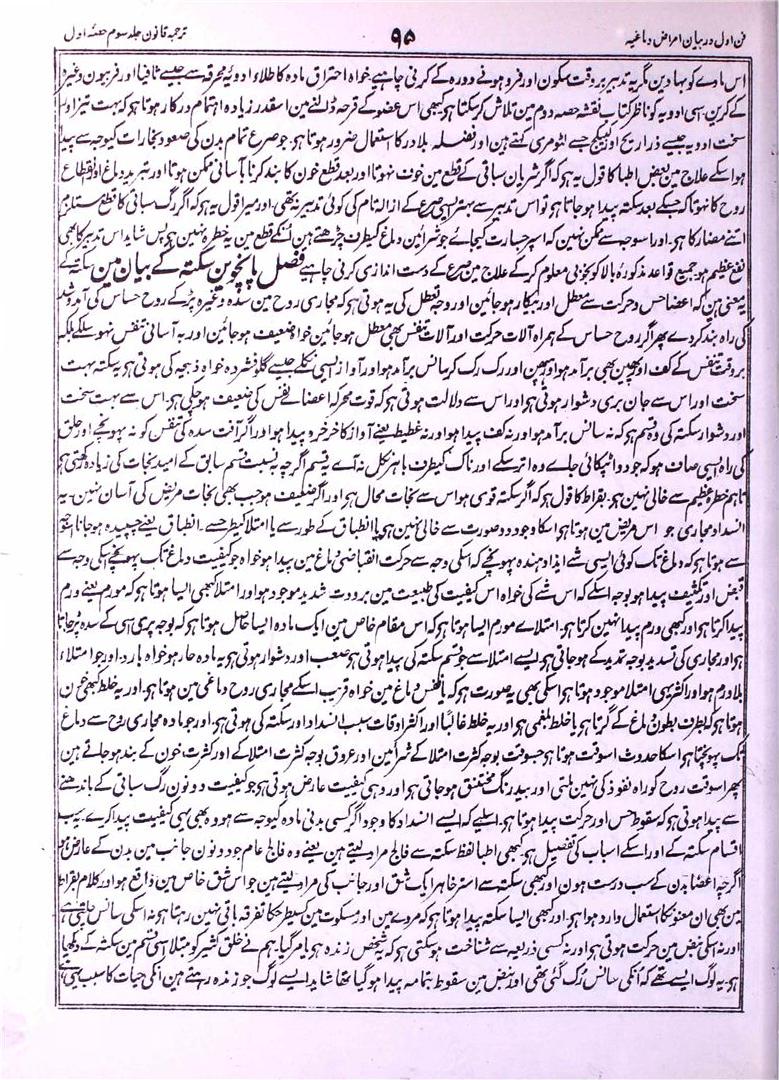 فن اول در بیان امراض دماغیہ ۹۵ ترجمہ قانون جلد سوم حصہ اول
اس مادے کو بہا دین مگر یہ تدبیر بروقت سکون اور فرو ہونے دورہ کے کرنی چاہیے خواہ احتراق مادہ کا طلاء ادویہ محرقہ سے جیسے ثافیا اور فربیون وغیرہ
کے کرین۔ سی ادویہ کو ناظر کتاب نقشہ حصہ دوم مین تلاش کر سکتا ہو کبھی اس عضو کے قرحہ ڈالنے مین اسقدر زیادہ اہتمام درکار ہوتا ہو کہ بہت تیز اور
سخت ادویہ جیسے ذراریح اور کبیکج جسے انٹومری کہتے ہین اور فضلہ بلادر کا استعمال ضرور ہوتا ہو۔ جو صرع تمام بدن کی صعود بخارات کیوجہ سے پیدا
ہو اسکے علاج مین بعض اطبا کا قول یہ ہو کہ اگر شریان سباتی کے قطع مین خوف نہوتا اور بعد قطع خون کا بند کرنا بآسانی ممکن ہوتا اور تبرید دماغ اور انقطاع
روح کا نہوتا کہ جسکے بعد سکتہ پیدا ہو جاتا ہو تو اس تدبیر سے بہتر ایسی صرع کے ازالہ تام کی کوئی تدبیر نہ تھی۔ اور میرا قول یہ ہو کہ اگر رگ سباتی کا قطع مستلزم
اتنے مضار کا ہو۔ اور اسوجہ سے ممکن نہین کہ اسپر جسارت کیجائے جو شرائین دماغ کیطرف چڑھتے ہین اُنکے قطع مین یہ خطرہ نہین ہو پس شاید اس تدبیر کا بھی
نفع عظیم ہو جمیع قواعد مذکورہ بالا کو بخوبی معلوم کر کے علاج مین صرع کے دست اندازی کرنی چاہیے فصل پانچوین سکتہ کے بیان مین سکتہ کے
یہ معنی ہین کہ اعضا حس و حرکت سے معطل اور بیکار ہو جائین اور وجہ تعطل کی یہ ہوتی ہو کہ مجاری روح مین سدہ وغیرہ پڑ کے روح حساس کی آمد و شد
کی راہ بند کر دے پھر اگر روح حساس کے ہمراہ آلات حرکت اور آلات تنفس بھی معطل ہو جائین خواہ ضعیف ہو جائین اور بہ آسانی تنفس نہو سکے بلکہ
بروقت تنفس کے کف اوبھپین بھی برآمد ہو اور رک رک کر سانس برآمد ہو اور آواز ایسی نکلے جیسے گلو فشردہ خواہ ذبیحہ کی ہوتی ہو یہ سکتہ بہت
سخت اور اس سے جان بری دشوار ہوتی ہو اور اس سے دلالت ہوتی ہو کہ قوت محرکہ اعضائے نفس کی ضعیف ہو چکی ہو اس سے بہت سخت
اور دشوار سکتہ کی وہ قسم ہو کہ نہ سانس برآمد ہو اور نہ کف پیدا ہو اور نہ غطیط یعنے آواز کا خرخرہ پیدا ہو اور اگر آفت سدہ کی تنفس کو نہ پہونچے اور حلق
کی راہ ایسی صاف ہو کہ جو دوا ٹپکائی جاے وہ اتر سکے اور ناک کیطرف باہر نکل نہ آے یہ قسم اگرچہ بہ نسبت قسم سابق کے امید نجات کی زیادہ رکھتی ہو
تاہم خطرہ عظیم سے خالی نہین ہو۔ بقراط کا قول ہو کہ اگر سکتہ قوی ہو اس سے نجات محال ہو اور اگر ضعیف ہو جب بھی نجات مریض کی آسان نہین۔ یہ
انسداد مجاری جو اس مریض مین ہوتا ہو اسکا وجود دو صورت سے خالی نہین ہو یا انطباق کے طور سے یا امتلا کیطرح سے۔ انطباق یعنے چسپیدہ ہو جانا اسوجہ
سے ہوتا ہو کہ دماغ تک کوئی ایسی شے ایذا دہندہ پہونچے کہ اسکی وجہ سے حرکت انقباضی دماغ مین پیدا ہو خواہ جو کیفیت دماغ تک پہونچے اسکی وجہ سے
قبض اور تکثیف پیدا ہو بوجہ اسکے کہ اس شے کی خواہ اس کیفیت کی طبیعت مین برودت شدید موجود ہو اور امتلا کبھی ایسا ہوتا ہو کہ مورم یعنے ورم
پیدا کرتا ہو اور کبھی ورم پیدا نہین کرتا ہو۔ امتلاے مورم ایسا ہوتا ہو کہ اس مقام خاص مین ایک مادہ ایسا حاصل ہوتا ہو کہ بوجہ پری اسی کے سدہ پڑ جاتا
ہو اور مجاری کی تسدید بوجہ تمدید کے ہو جاتی ہو ایسے امتلا سے جو قسم سکتہ کی پیدا ہوتی ہو صعب اور دشوار ہوتی ہو یہ مادہ حار ہو خواہ بارد۔ اور جو امتلاء
بلا ورم ہو اور اکثر یہی امتلا موجود ہوتا ہو اسکی بھی یہ صورت ہو کہ یا نفس دماغ مین خواہ قریب اسکے مجاری روح دماغی مین ہوتا ہو۔ اور یہ خلط کبھی خون
ہوتا ہو کہ بطرف بطون دماغ کے گرتا ہو یا خلط بلغمی ہو اور یہ خلط غالبًا اور اکثر اوقات سبب انسداد اور سکتہ کی ہوتی ہو۔ اور جو مادہ مجاری روح سے دماغ
تک پہونچتا ہو اسکا حدوث اسوقت ہوتا ہو جسوقت بوجہ کثرت امتلا کے شرائین اور عروق بوجہ کثرت امتلا کے اور کثرت خون کے بند ہو جاتے ہین
پھر اسوقت روح کو راہ نفوذ کی نہین ملتی اور بیدرنگ مختنق ہو جاتی ہو اور وہی کیفیت عارض ہوتی ہو جو کیفیت دونون رگ سباتی کے باندھنے
سے پیدا ہوتی ہو کہ سقوط حس اور حرکت پیدا ہوتا ہو۔ اسلیے کہ ایسے انسداد کا وجود اگر کسی بدنی مادہ کیوجہ سے ہو وہ بھی یہی کیفیت پیدا کرے یہ سب
اقسام سکتہ کے اور اسکے اسباب کی تفصیل ہو کبھی اطبا لفظ سکتہ سے فالج مراد لیتے ہین یعنے وہ فالج عام جو دونون جانب مین بدن کے عارض ہو
اگرچہ اعضا بدن کے سب درست ہون اور کبھی سکتہ سے استرخا ہر ایک شق اور جانب کی مراد لیتے ہین جو اس شق خاص مین واقع ہو اور کلام بقراط
مین بھی ان معنونکا استعمال وارد ہوا ہو۔ اور کبھی ایسا سکتہ پیدا ہوتا ہو کہ مردے مین اور مسکوت مین کسیطرحکا تفرقہ باقی نہین رہتا ہو نہ اسکی سانس چلتی ہے
اور نہ اسکی نبض مین حرکت ہوتی ہو اور نہ کسی ذریعہ سے شناخت ہو سکتی ہو کہ یہ شخص زندہ ہو یا مر گیا۔ ہم نے خلق کثیر کو مبتلا اسی قسم مین سکتہ کے دیکھا
ہو۔ یہ لوگ ایسے تھے کہ اُنکی سانس رُک گئی تھی اور نبض مین سقوط بتمامہ پیدا ہو گیا تھا شاید ایسے لوگ جو زندہ رہتے ہین اُنکی حیات کا سبب یہی ہے